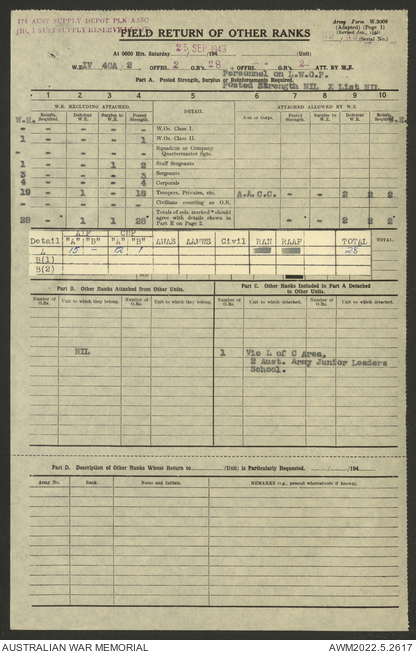 174 AUST SUPPLY DEPOT PLN AASC
Army Form W.3009
(Adapted) (Page 1)
FIELD RETURN OF OTHER RANKS
(Serial No.)
At 0600 Hrs. Saturday 25 SEP 1943 (Unit)
W.E. XV 40A 2 OFFRS. 2 O.R's. 28 + OFFRS. - O.R's. 2- ATT. BY W.E.
Personnel on L.W.O.P.
Part A. Posted Strength, Surplus or Reinforcements Required.
Posted Strength NIL X List NIL
1 2 3 4 5 6 7 8 9 10
W.E. EXCLUDING ATTACHED. DETAIL. ATTACHED ALLOWED BY W.E.
W.E. Reinfts. Required. Deficient W.E. Surplus to W.E. Posted Strength. Arm or Corps. Posted Strength. Surplus to W.E. Deficient W.E. Reinfts. Required. W.E.
- - - - - W.Os. Class I.
1 - - - 1 W.Os. Class II.
- - - - - Squadron or Company Quartermaster Sgts.
1 - - 1 2 Staff Sergeants
3 - - - 3 Sergeants
4 - - - 4 Corporals
19 - 1 - 18 Troopers, Privates, etc. A.A.C.C. - - 2 2 2
- - - - Civilians counting as O.R.
28 - 1 1 28 Totals of cols. marked * should agree with details shown in Part E on Page 2. - - 2 2 2
AIF CMF
Detail "A" "B" "A" "B" AWAS AAMWS Civil RAN RAAF TOTAL TOTAL.
A 15 - 12 1 28
B(1)
B(2)
Part B. Other Ranks Attached from Other Units. Part C. Other Ranks Included in Part A Detached to Other Units.
Number of O.Rs. Unit to which they belong. Number of O.Rs. Unit to which they belong. Number of O.Rs. Unit to which detached. Number of O.Rs. Unit to which detached.
NIL 1 Vic L of C Area,
2 Aust. Army Junior Leaders
School.
Part D. Description of Other Ranks Whose Return to (Unit) is Particularly Requested. / /194
Army No. Rank. Name and Initials. REMARKS (e.g., present whereabouts if known).
AUSTRALIAN WAR MEMORIAL AWM2022.5.2617